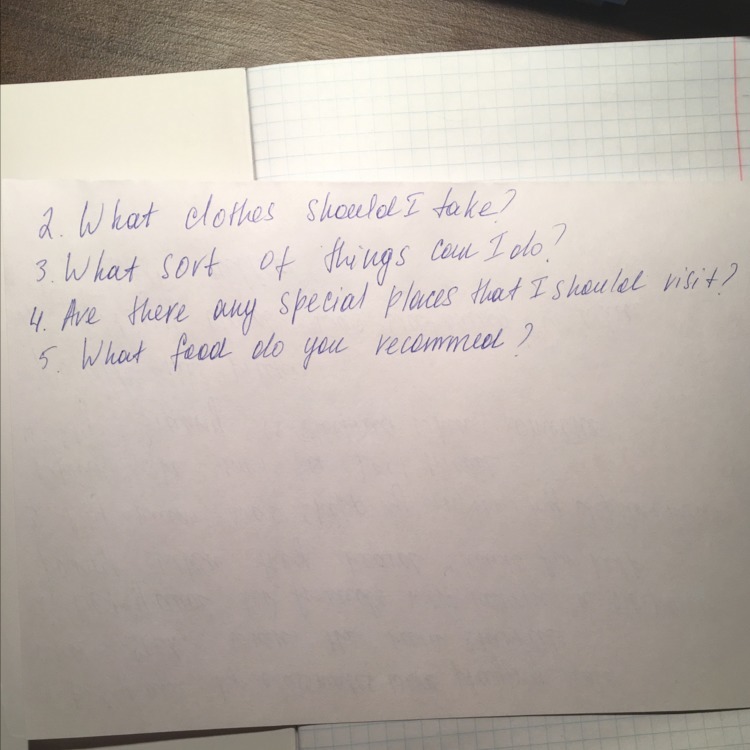 2. What clothes should I take?
3. What sort of things can I do?
4. Are there any special places that I should visit?
5. What food do you recommed?